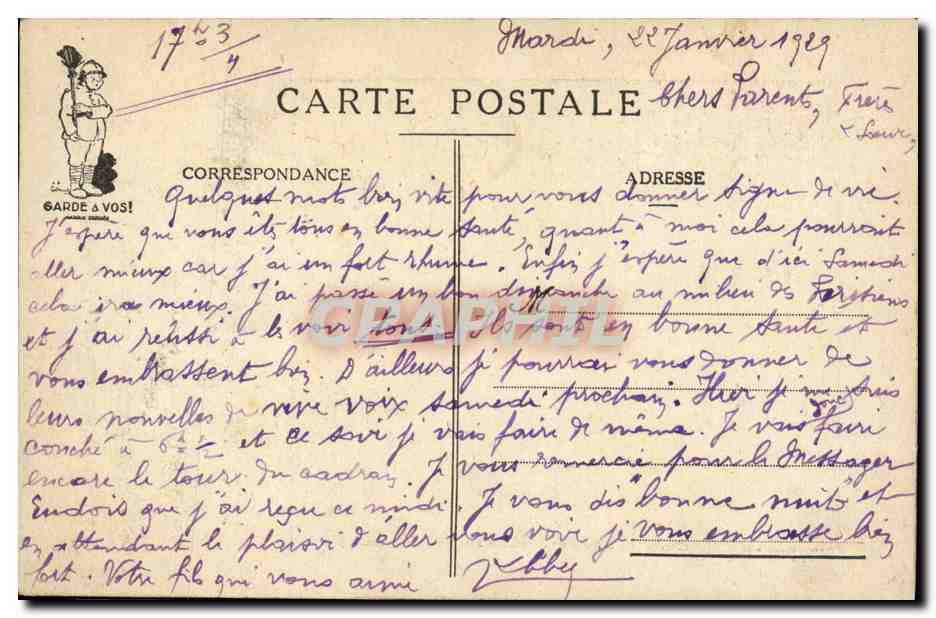 17h 3/4
Mardi, 22 Janvier 1929
CARTE POSTALE
Chers Parents, Frère
& Soeur,
CORRESPONDANCE
ADRESSE
GARDE à VOS!
Quelques mots bien vite pour vous donner signe de vie.
J'espère que vous êtes tous en bonne santé, quant à moi cela pourrait
aller mieux car j'ai un fort rhume. Enfin j'espère que d'ici Samedi
cela ira mieux. J'ai passé un bon dimanche au milieu des Parisiens
et j'ai réussi à les voir tous. Ils sont en bonne santé et
vous embrassent bien. D'ailleurs je pourrai vous donner de
leurs nouvelles de vive voix samedi prochain. Hier je me suis
couché à 6h 1/2 et ce soir je vais faire de même. Je vais donc faire
encore le tour du cadran. Je vous remercie pour le Messager
Eudois que j'ai reçu ce midi. Je vous dis "bonne nuit" et
en attendant le plaisir d'aller vous voir je vous embrasse bien
fort. Votre fils qui vous aime
CPAPHIL